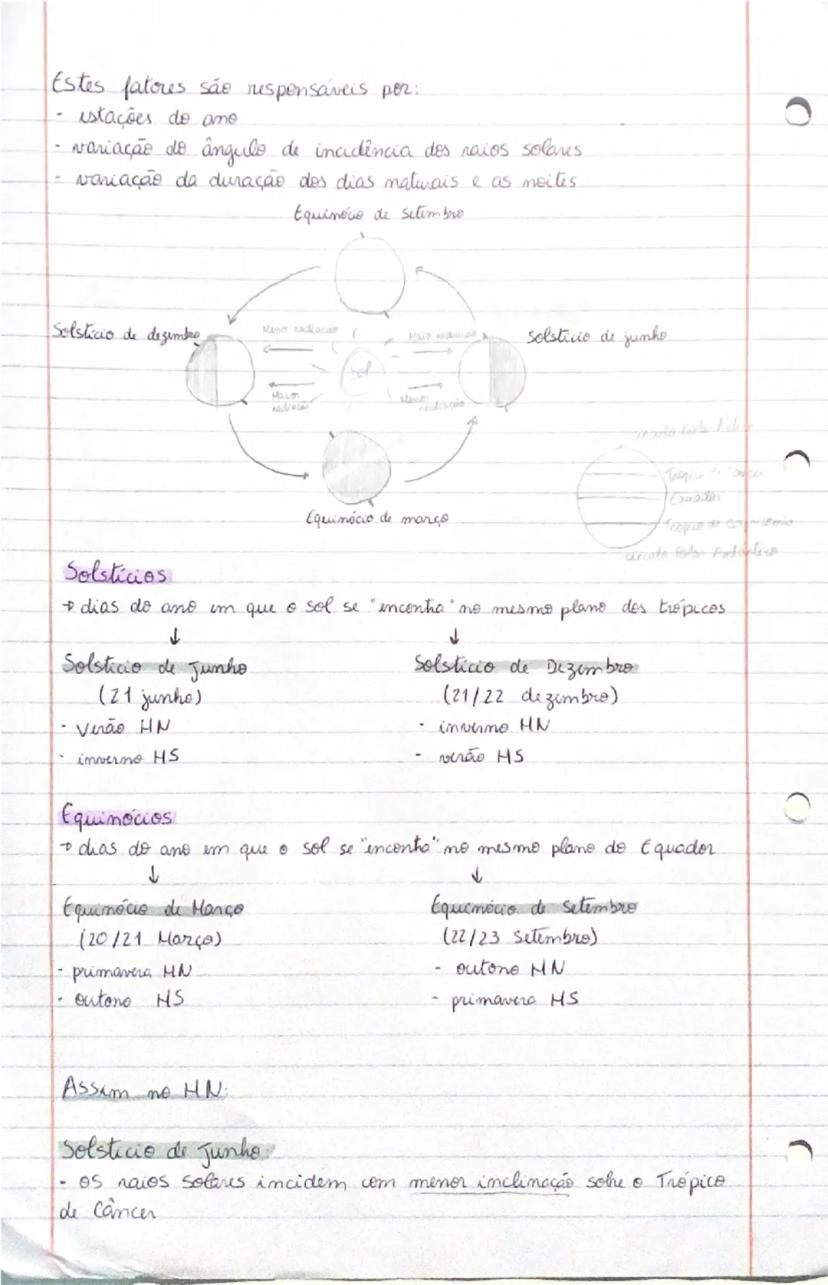 Estes fatores são responsáveis por:
- estações do ano
- variação do ângulo de incidência dos raios solares
- variação da duração dos dias naturais e as noites
Equinócio de Setembro
Solstício de dezembro
Menor radiação
Maior radiação
Solstício de junho
Sol
Maior radiação
Menor radiação
Equinócio de março
círculo Polar
Trópico de Cancer
Equador
Trópico de Capricornio
círculo Polar Antártico
Solstícios
→ dias do ano em que o sol se "encontra" no mesmo plano dos trópicos
↓ ↓
Solstício de Junho Solstício de Dezembro
(21 junho) (21/22 dezembro)
- Verão HN - inverno HN
- inverno HS - verão HS
Equinócios
→ dias do ano em que o sol se "encontra" no mesmo plano do Equador
↓ ↓
Equinócio de Março Equinócio de Setembro
(20/21 Março) (22/23 Setembro)
- primavera HN - outono HN
- outono HS - primavera HS
Assim no HN:
Solstício de Junho:
- os raios solares incidem com menor inclinação sobre o Trópico
de Câncer